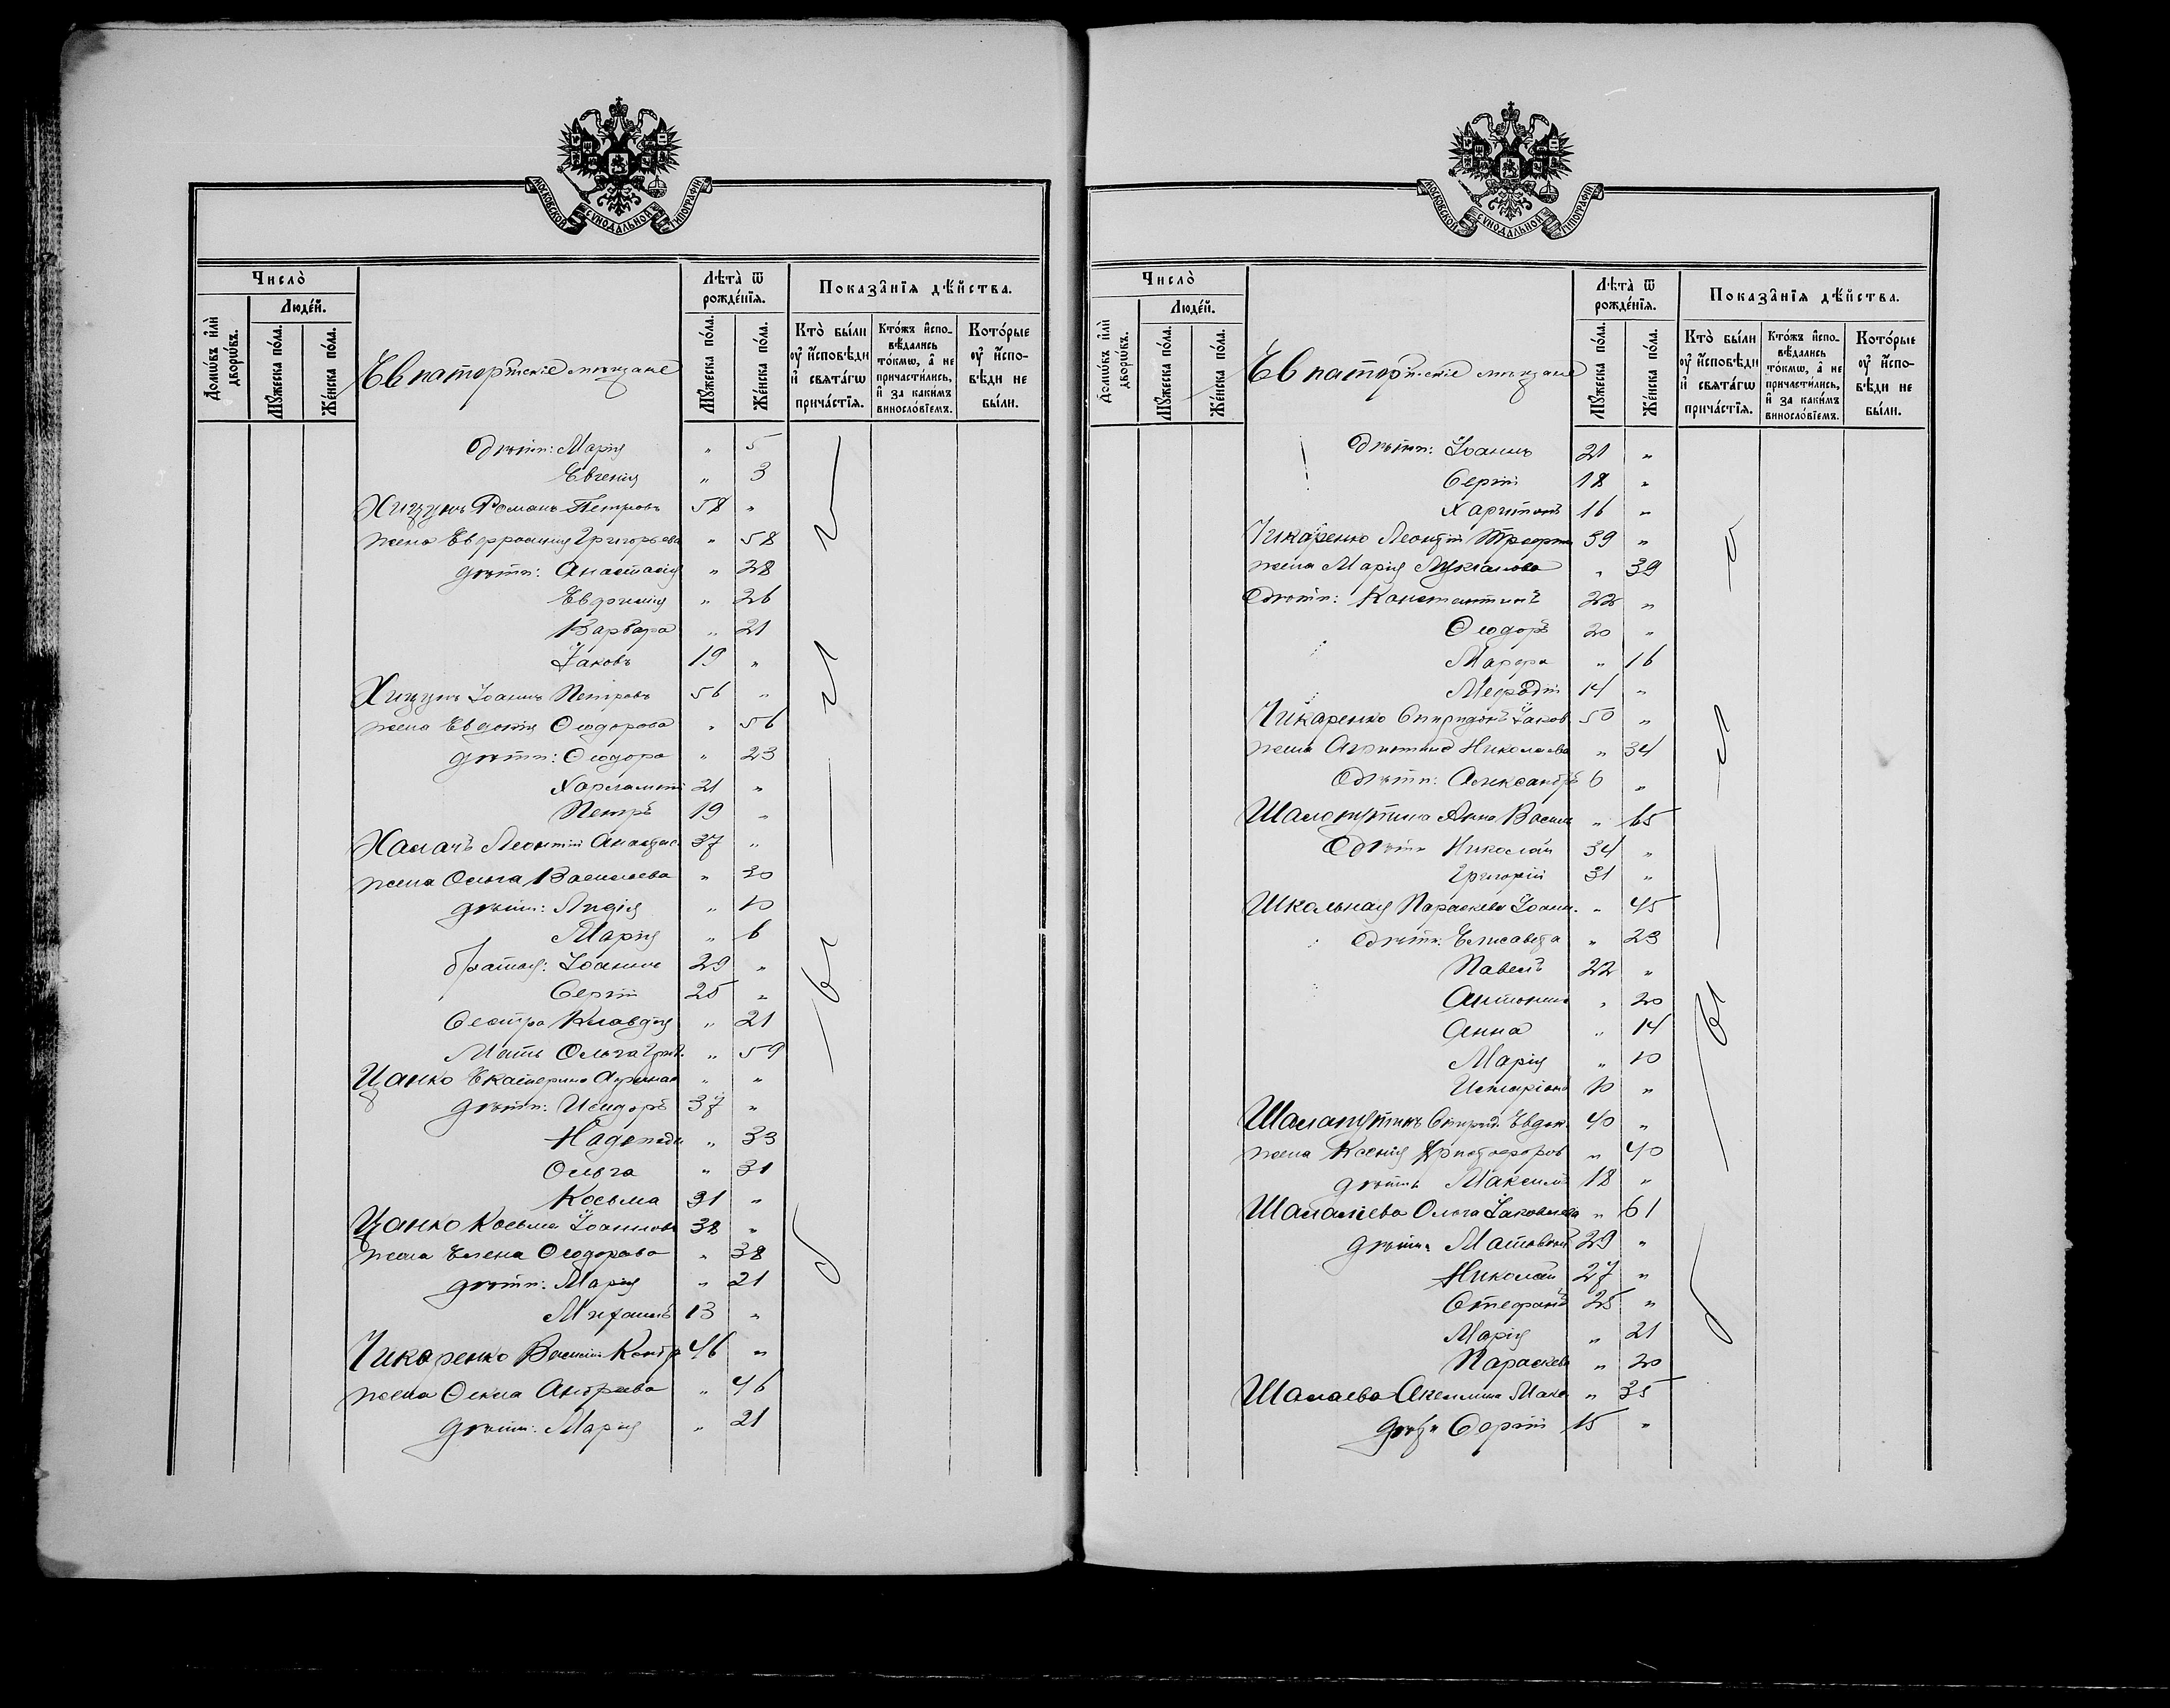 МОСКОВСКОЙ СУНОДАЛЬНОЙ ТИПОГРАФІИ
Число̀
Людей.
Домѡвъ и҆лѝ дворѡвъ.
Мꙋжеска по́ла.
Же́нска по́ла.
Евпаторійскіе мѣщане
Лѣта̀ ѿ рожде́нїѧ.
Мꙋжеска по́ла.
Же́нска по́ла.
Показа̑нїѧ дѣ́йства.
Кто̀ бы́ли ᲂу҆ и҆́сповѣди и҆ свѧта́гѡ прича́стїѧ.
Кто́жъ и҆сповѣ́дались то́кмѡ, а҆ не причасти́лись, и҆ за каки́мъ винословїемъ.
Кото́рые ᲂу҆ и҆́сповѣди не бы́ли.
дѣти: Марія " 5
Евгенія " 3
Хицунъ Романъ Петровъ 58 "
жена Евфросинія Григорьева " 58
дѣти: Анастасія " 28
Евфимія " 26
Варвара " 21
Іаковъ 19 "
Хицунъ Іоаннъ Петровъ 56 "
жена Евдокія Ѳеодорова " 56
дѣти: Ѳеодора " 23
Харлампій 21 "
Петръ 19 "
Халачъ Леонтій Анастас. 37 "
жена Ольга Васильева " 30
дѣти: Лидія " 10
Марія " 6
братья: Іоаннъ 29 "
Сергій 25 "
Сестра Клавдія " 21
Мать Ольга Григ. " 59
Цанко Екатерина Афанас " "
дѣти: Исидоръ 37 "
Надежда " 33
Ольга " 31
Косьма 31 "
Цанко Косьма Іоанновъ 38 "
жена Елена Ѳеодорова " 38
дѣти: Марія " 21
Михаилъ 13 "
Чикаренко Василій Кондр 46 "
жена Ѳекла Андреева " 46
дѣти: Марія " 21
были
МОСКОВСКОЙ СУНОДАЛЬНОЙ ТИПОГРАФІИ
Число̀
Людей.
Домѡвъ и҆лѝ дворѡвъ.
Мꙋжеска по́ла.
Же́нска по́ла.
Евпаторійскіе мѣщане
Лѣта̀ ѿ рожде́нїѧ.
Мꙋжеска по́ла.
Же́нска по́ла.
Показа̑нїѧ дѣ́йства.
Кто̀ бы́ли ᲂу҆ и҆́сповѣди и҆ свѧта́гѡ прича́стїѧ.
Кто́жъ и҆сповѣ́дались то́кмѡ, а҆ не причасти́лись, и҆ за каки́мъ винословїемъ.
Кото́рые ᲂу҆ и҆́сповѣди не бы́ли.
дѣти: Іоаннъ 21 "
Сергій 18 "
Харитонъ 16 "
Чикаренко Леонтій 39 "
жена Марія Лукіанова " 39
дѣти: Константинъ 22 "
Ѳеодоръ 20 "
Марфа " 16
Меѳодій 14 "
Чикаренко Спиридонъ Іаков 50 "
жена Агриппина Николаева " 34
дѣти: Александръ 6 "
Шалопутина Анна Васил " 65
дѣти Николай 34 "
Григорій 31 "
Школьная Параскева Іоанн. " 45
дѣти: Елисавета " 23
Павелъ 22 "
Антонина " 20
Анна " 14
Марія " 10
10 "
Шалапутинъ Спирид. Евдок. 40 "
жена Ксенія Христофоров " 40
дѣти Максимъ 18 "
Ольга Іаковлева " 61
дѣти Матѳей 29 "
Николай 27 "
Стефанъ 25 "
Марія " 21
Параскева " 20
Шалаева Акилина Мака " 35
дѣти Сергій 15 "
были